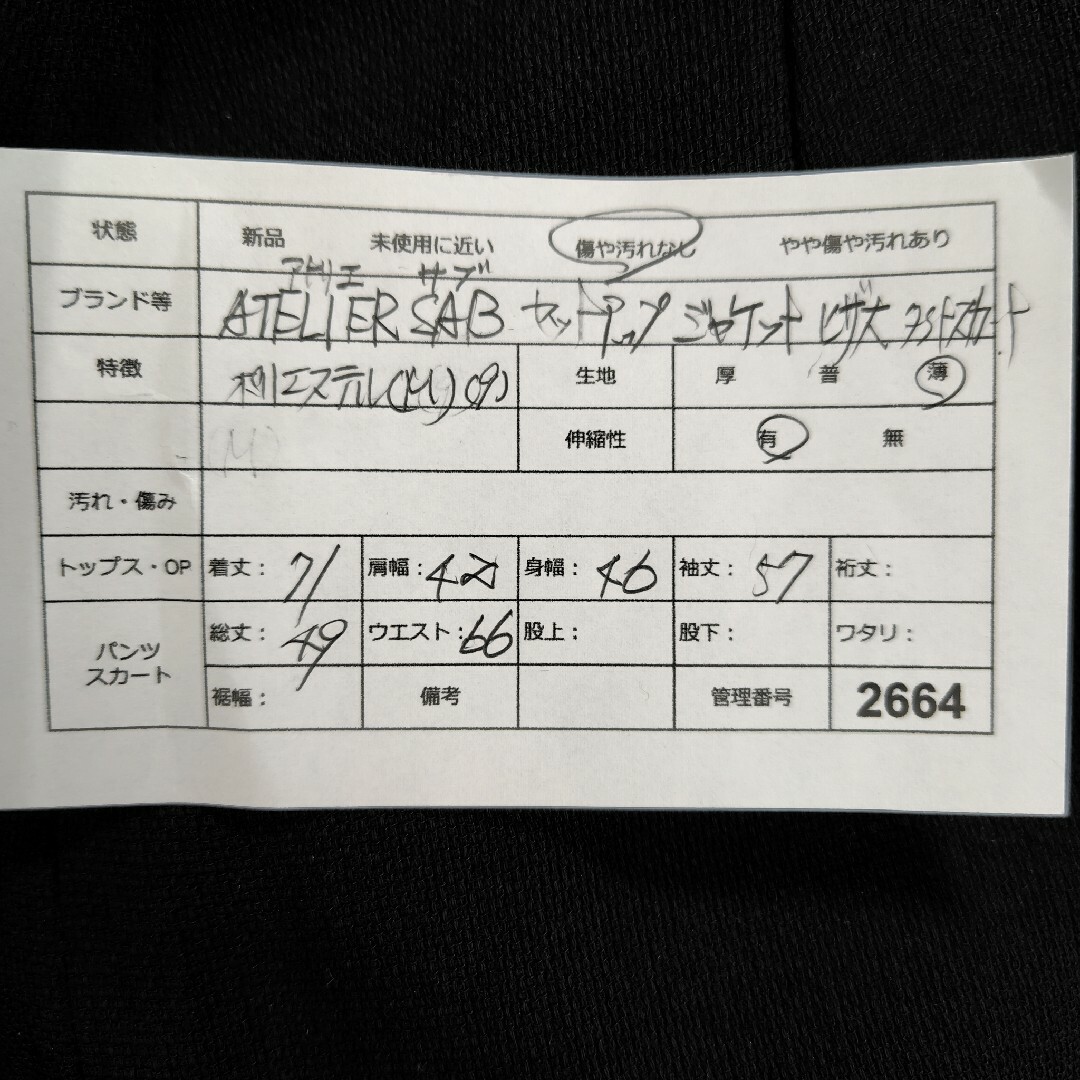 状態 新品 未使用に近い 傷や汚れなし やや傷や汚れあり
アトリエ サブ
ブランド等 ATELIER SAB セットアップ ジャケット ヒザ丈
特徴 ポリエステル(M)(9) 生地 厚 普 薄
(M) 伸縮性 有 無
汚れ・傷み
トップス・OP 着丈: 71 肩幅: 42 身幅: 46 袖丈: 57 裄丈:
パンツ スカート 総丈: 49 ウエスト: 66 股上: 股下: ワタリ:
裾幅: 備考 管理番号 2664